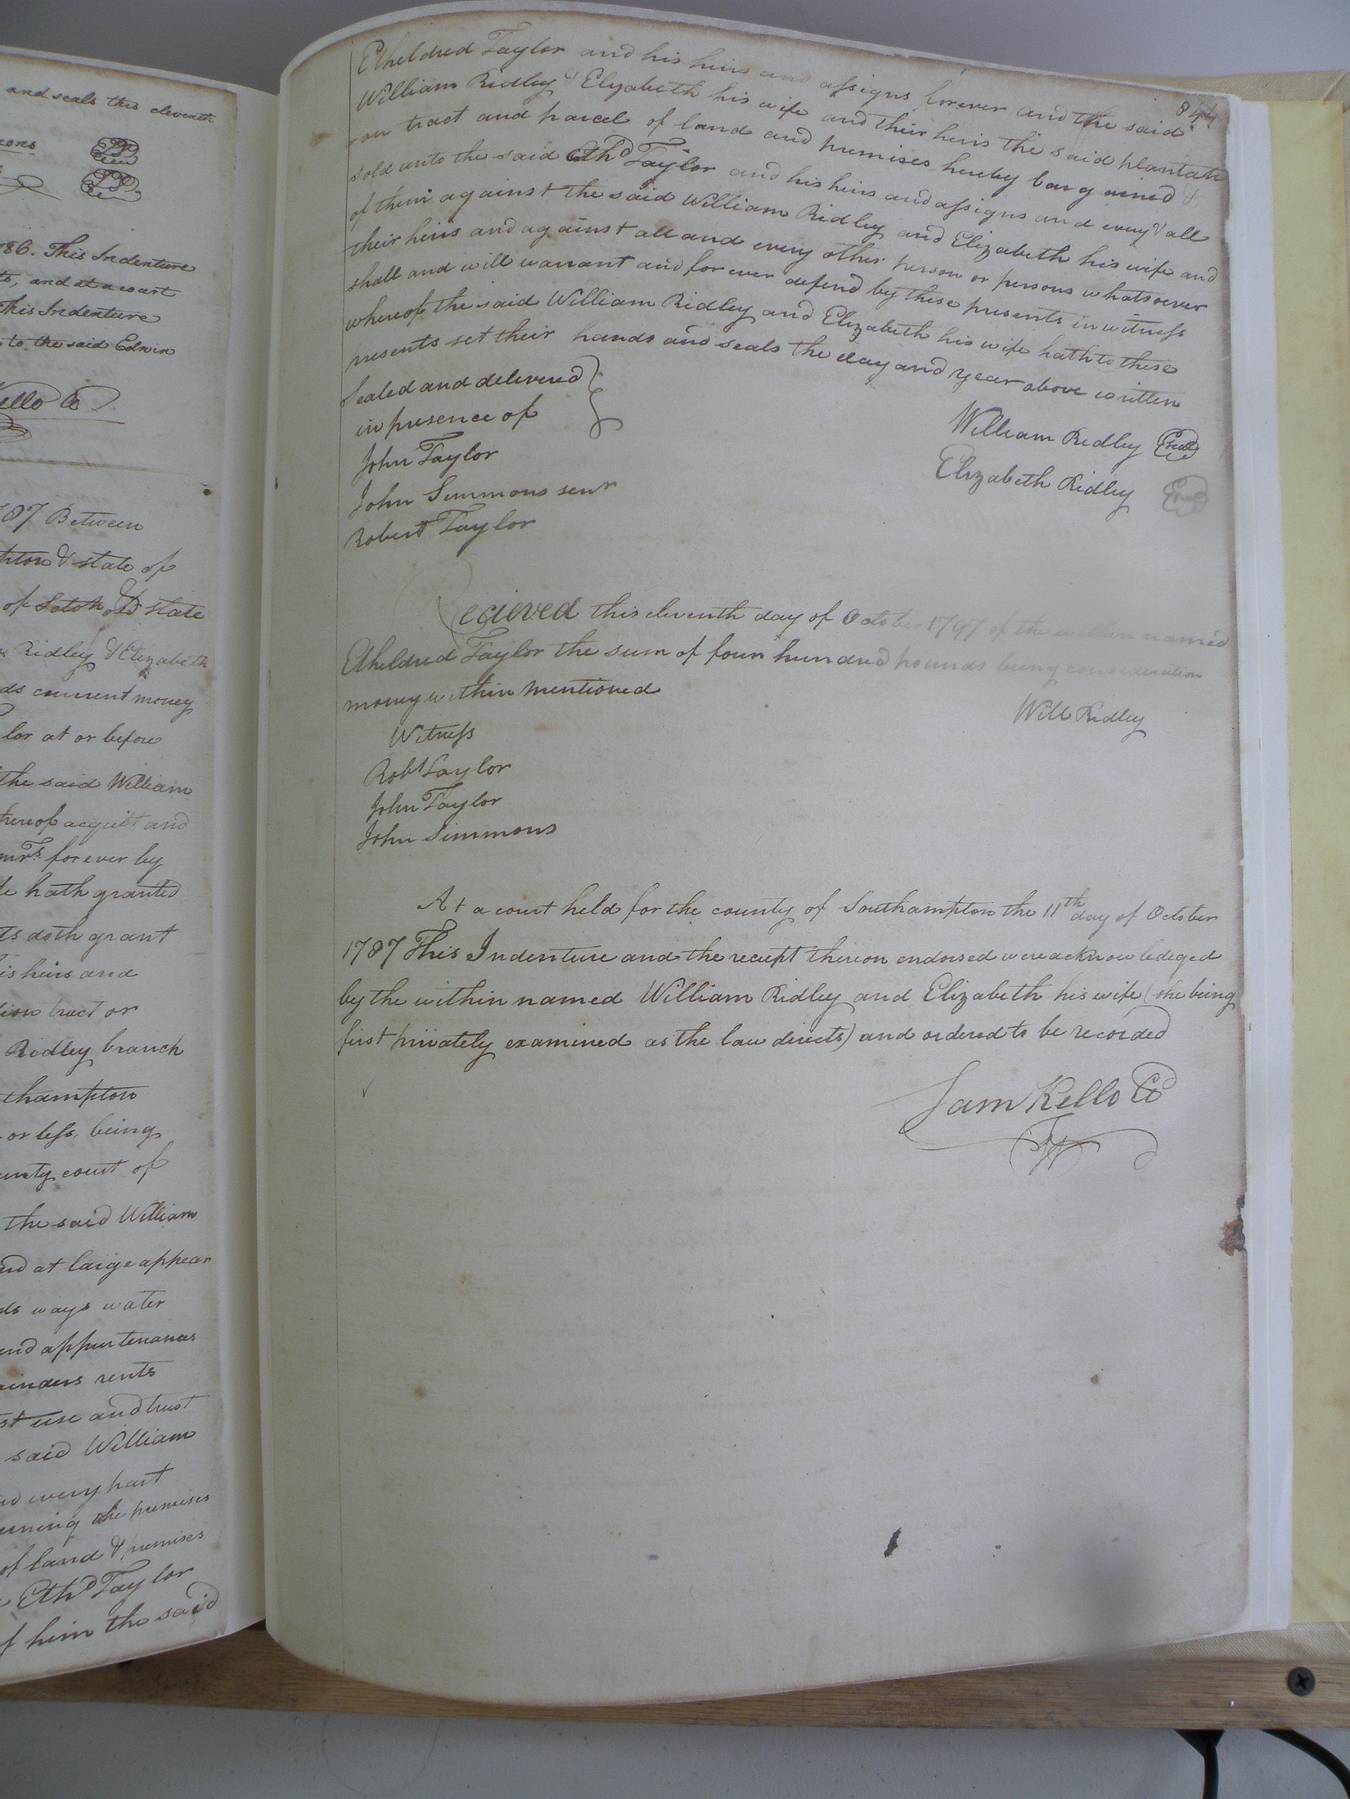 and seals this eleventh
86. This Indenture
and at a court
this Indenture
to the said Edwin
Kello C
Between
& state of
of state
Ridley & Elizabeth
current money
lor at or before
the said William
thereof acquit and
forever by
hath granted
doth grant
his heirs and
tract or
Ridley branch
thampton
or less being
county court of
the said William
and at large appear
ways water
and appurtenances
rents
use and trust
said William
every part
the premises
of land & premises
Ethd Taylor
of him the said
844
Etheldred Taylor and his heirs and assigns forever and the said
William Ridley & Elyabeth his wife and their heirs the said plantati
on tract and parcel of land and premises hereby bargained &
sold unto the said Ethd Taylor and his heirs and assigns and every & all
of them against the said William Ridley and Elizabeth his wife and
their heirs and against all and every other person or persons whatsoever
shall and will warrant and forever defend by these presents in witness
whereof the said William Ridley and Elizabeth his wife hath to these
presents set their hands and seals the day and year above written
Sealed and delivered
in presence of
William Ridley Seal
John Taylor
Elizabeth Ridley Seal
John Simmons senr
Robert Taylor
Recieved this eleventh day of October 1797 of the within named
Etheldred Taylor the sum of four hundred pounds being consideration
money within mentioned
Will Ridley
Witness
Robt Taylor
John Taylor
John Simmons
At a court held for the county of Southampton the 11th day of October
1787 This Indenture and the receipt thereon endorsed were acknowledged
by the within named William Ridley and Elizabeth his wife (she being
first privately examined as the law directs) and ordered to be recorded
Sam Kello CC